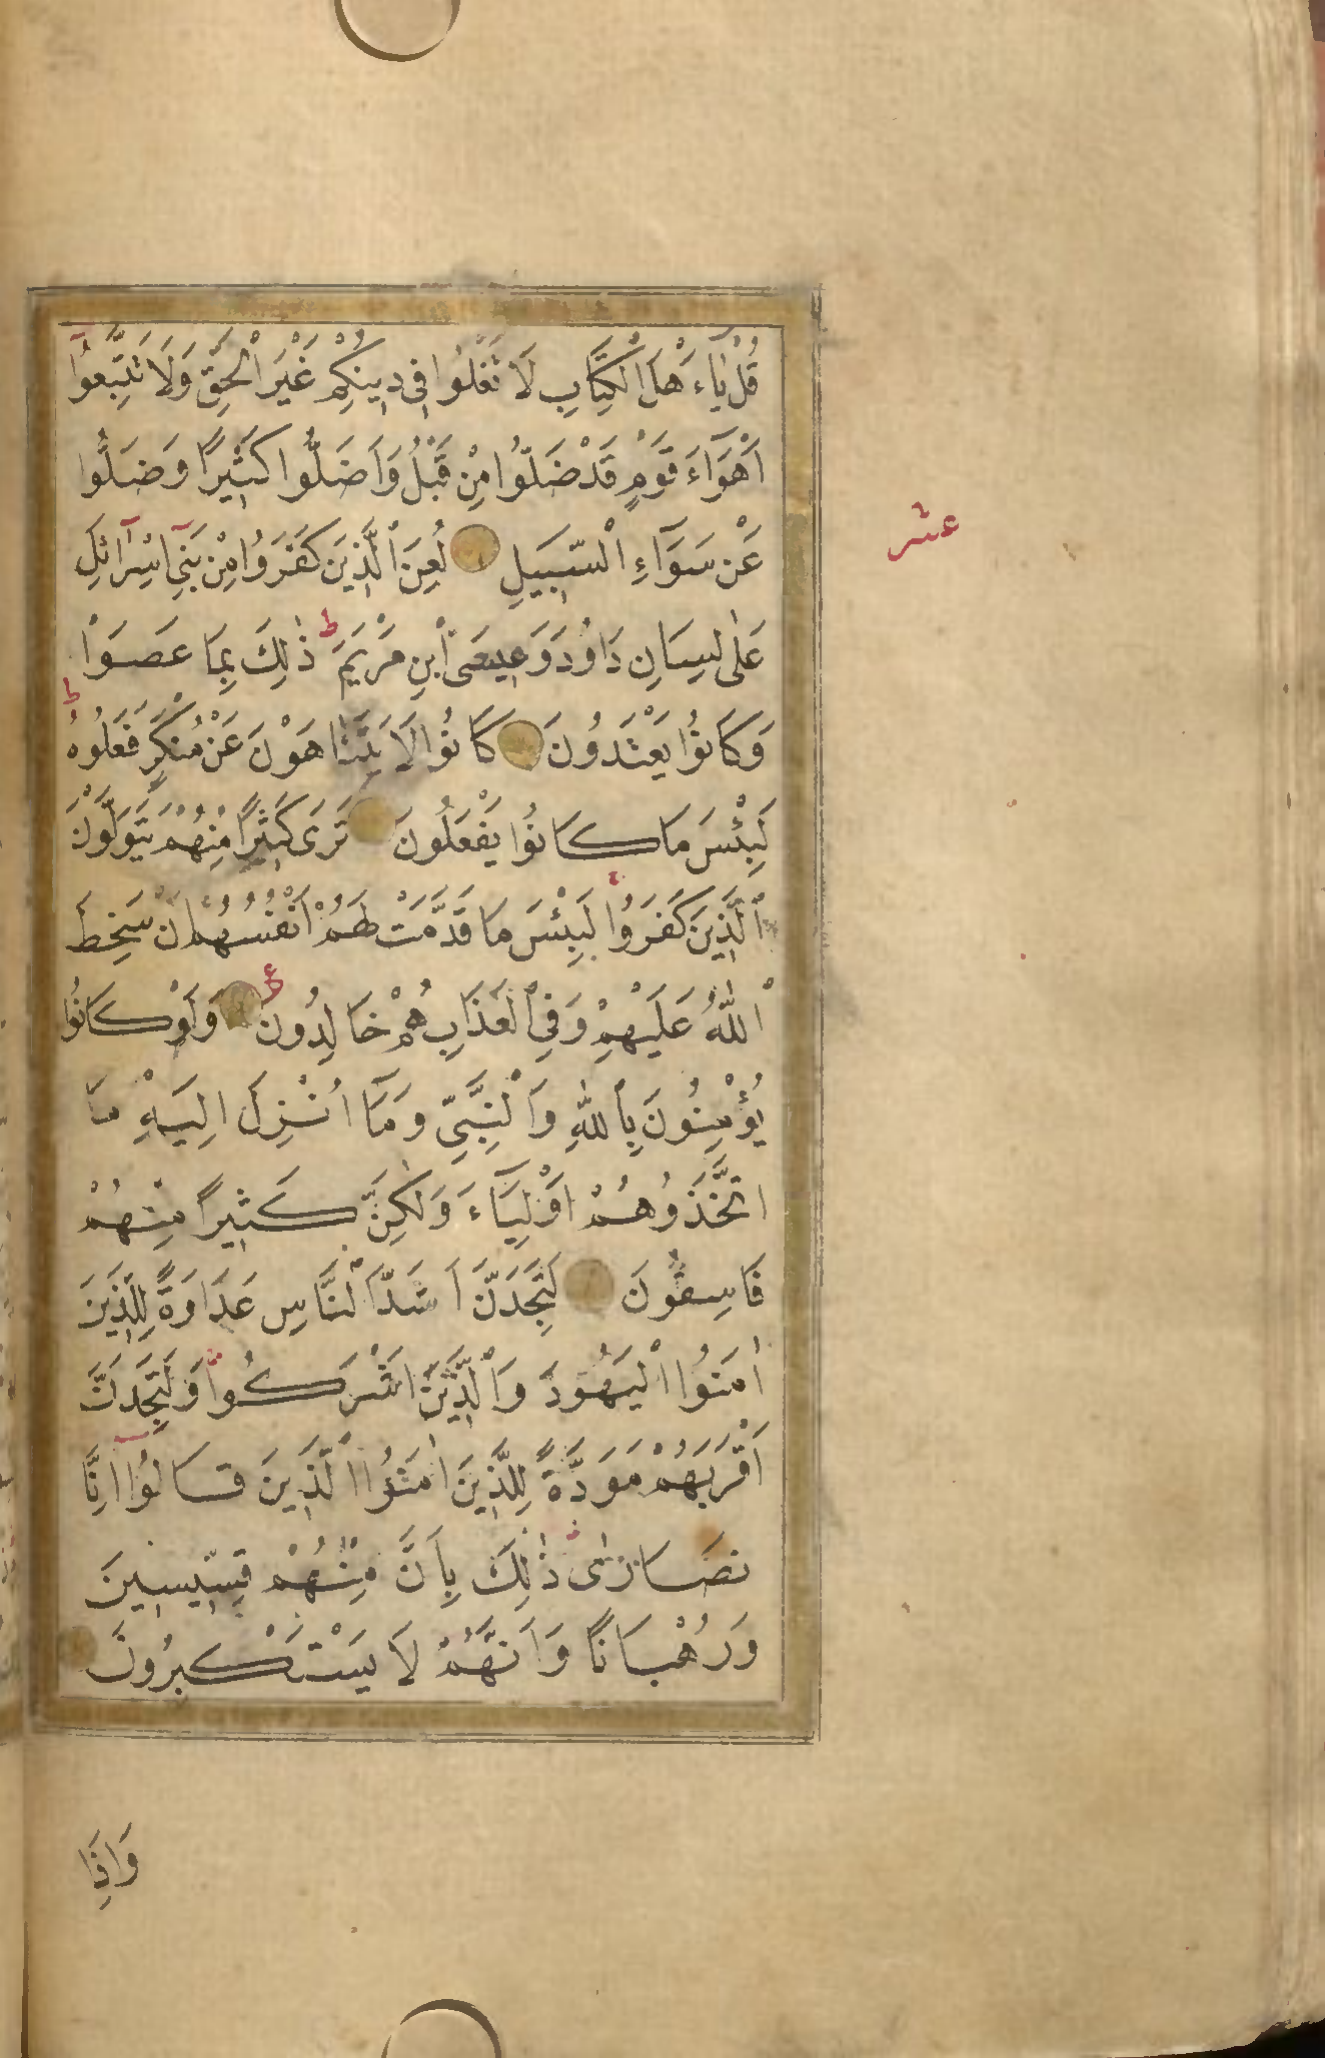 قُلْ يَاءَهْلَ اْلكِتَابِ لَا تَغْلُوا فِى دِينِكُمْ غَيْرَ اْلحَقِّ وَلَا تَتَّبِعُوٓا
اَهْوَآءَ قَوْمٍ قَدْ ضَلُّوا مِنْ قَبْلُ وَاَضَلُّوا كَثِيرًا وَضَلُّوا
عَنْ سَوَآءِ اْلسَّبِيلِ لُعِنَ اْلَّذِينَ كَفَرُوا مِنْ بَنِىٓ اِسْرَآئِلَ
عَلٰى لِسَانِ دَاوُدَ وَعِيسَى اْبنِ مَرْيَمَ ط ذٰلِكَ بِمَا عَصَوْا
وَكَانُوا يَعْتَدُونَ كَانُوا لَا يَتَنَاهَوْنَ عَنْ مُنْكَرٍ فَعَلُوهُ ط
لَبِئْسَ مَا كَانُوا يَفْعَلُونَ تَرَى كَثِيرًا مِنْهُمْ يَتَوَلَّوْنَ
اْلَّذِينَ كَفَرُوا لَبِئْسَ مَا قَدَّمَتْ لَهُمْ اَنْفُسُهُمْ اَنْ سَخِطَ
اْللّٰهُ عَلَيْهِمْ وَفِى اْلعَذَابِ هُمْ خَالِدُونَ وَلَوْ كَانُوا
يُؤْمِنُونَ بِاْللّٰهِ وَاْلنَّبِىِّ وَمَآ اُنْزِلَ اِلَيْهِ مَا
اتَّخَذُوهُمْ اَوْلِيَآءَ وَلٰكِنَّ كَثِيرًا مِنْهُمْ
فَاسِقُونَ لَتَجِدَنَّ اَشَدَّ اْلنَّاسِ عَدَاوَةً لِلَّذِينَ
اٰمَنُوا اْليَهُودَ وَاْلَّذِينَ اَشْرَكُوا وَلَتَجِدَنَّ
اَقْرَبَهُمْ مَوَدَّةً لِلَّذِينَ اٰمَنُوا اْلَّذِينَ قَالُوٓا اِنَّا
نَصَارٰى ذٰلِكَ بِاَنَّ مِنْهُمْ قِسِّيسِينَ
وَرُهْبَانًا وَاَنَّهُمْ لَا يَسْتَكْبِرُونَ
وَاِذَا
عشر